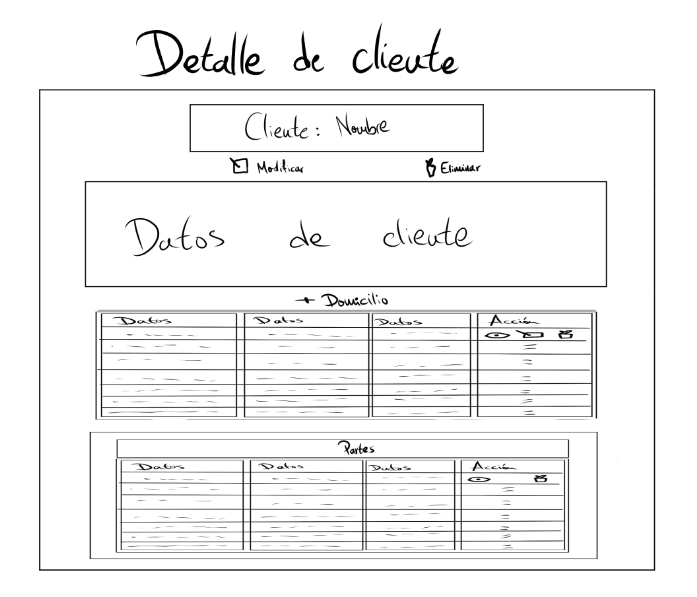 Detalle de cliente
Cliente: Nombre
Modificar Eliminar
Datos de cliente
+ Domicilio
Datos Datos Datos Acción
Partes
Datos Datos Datos Acción